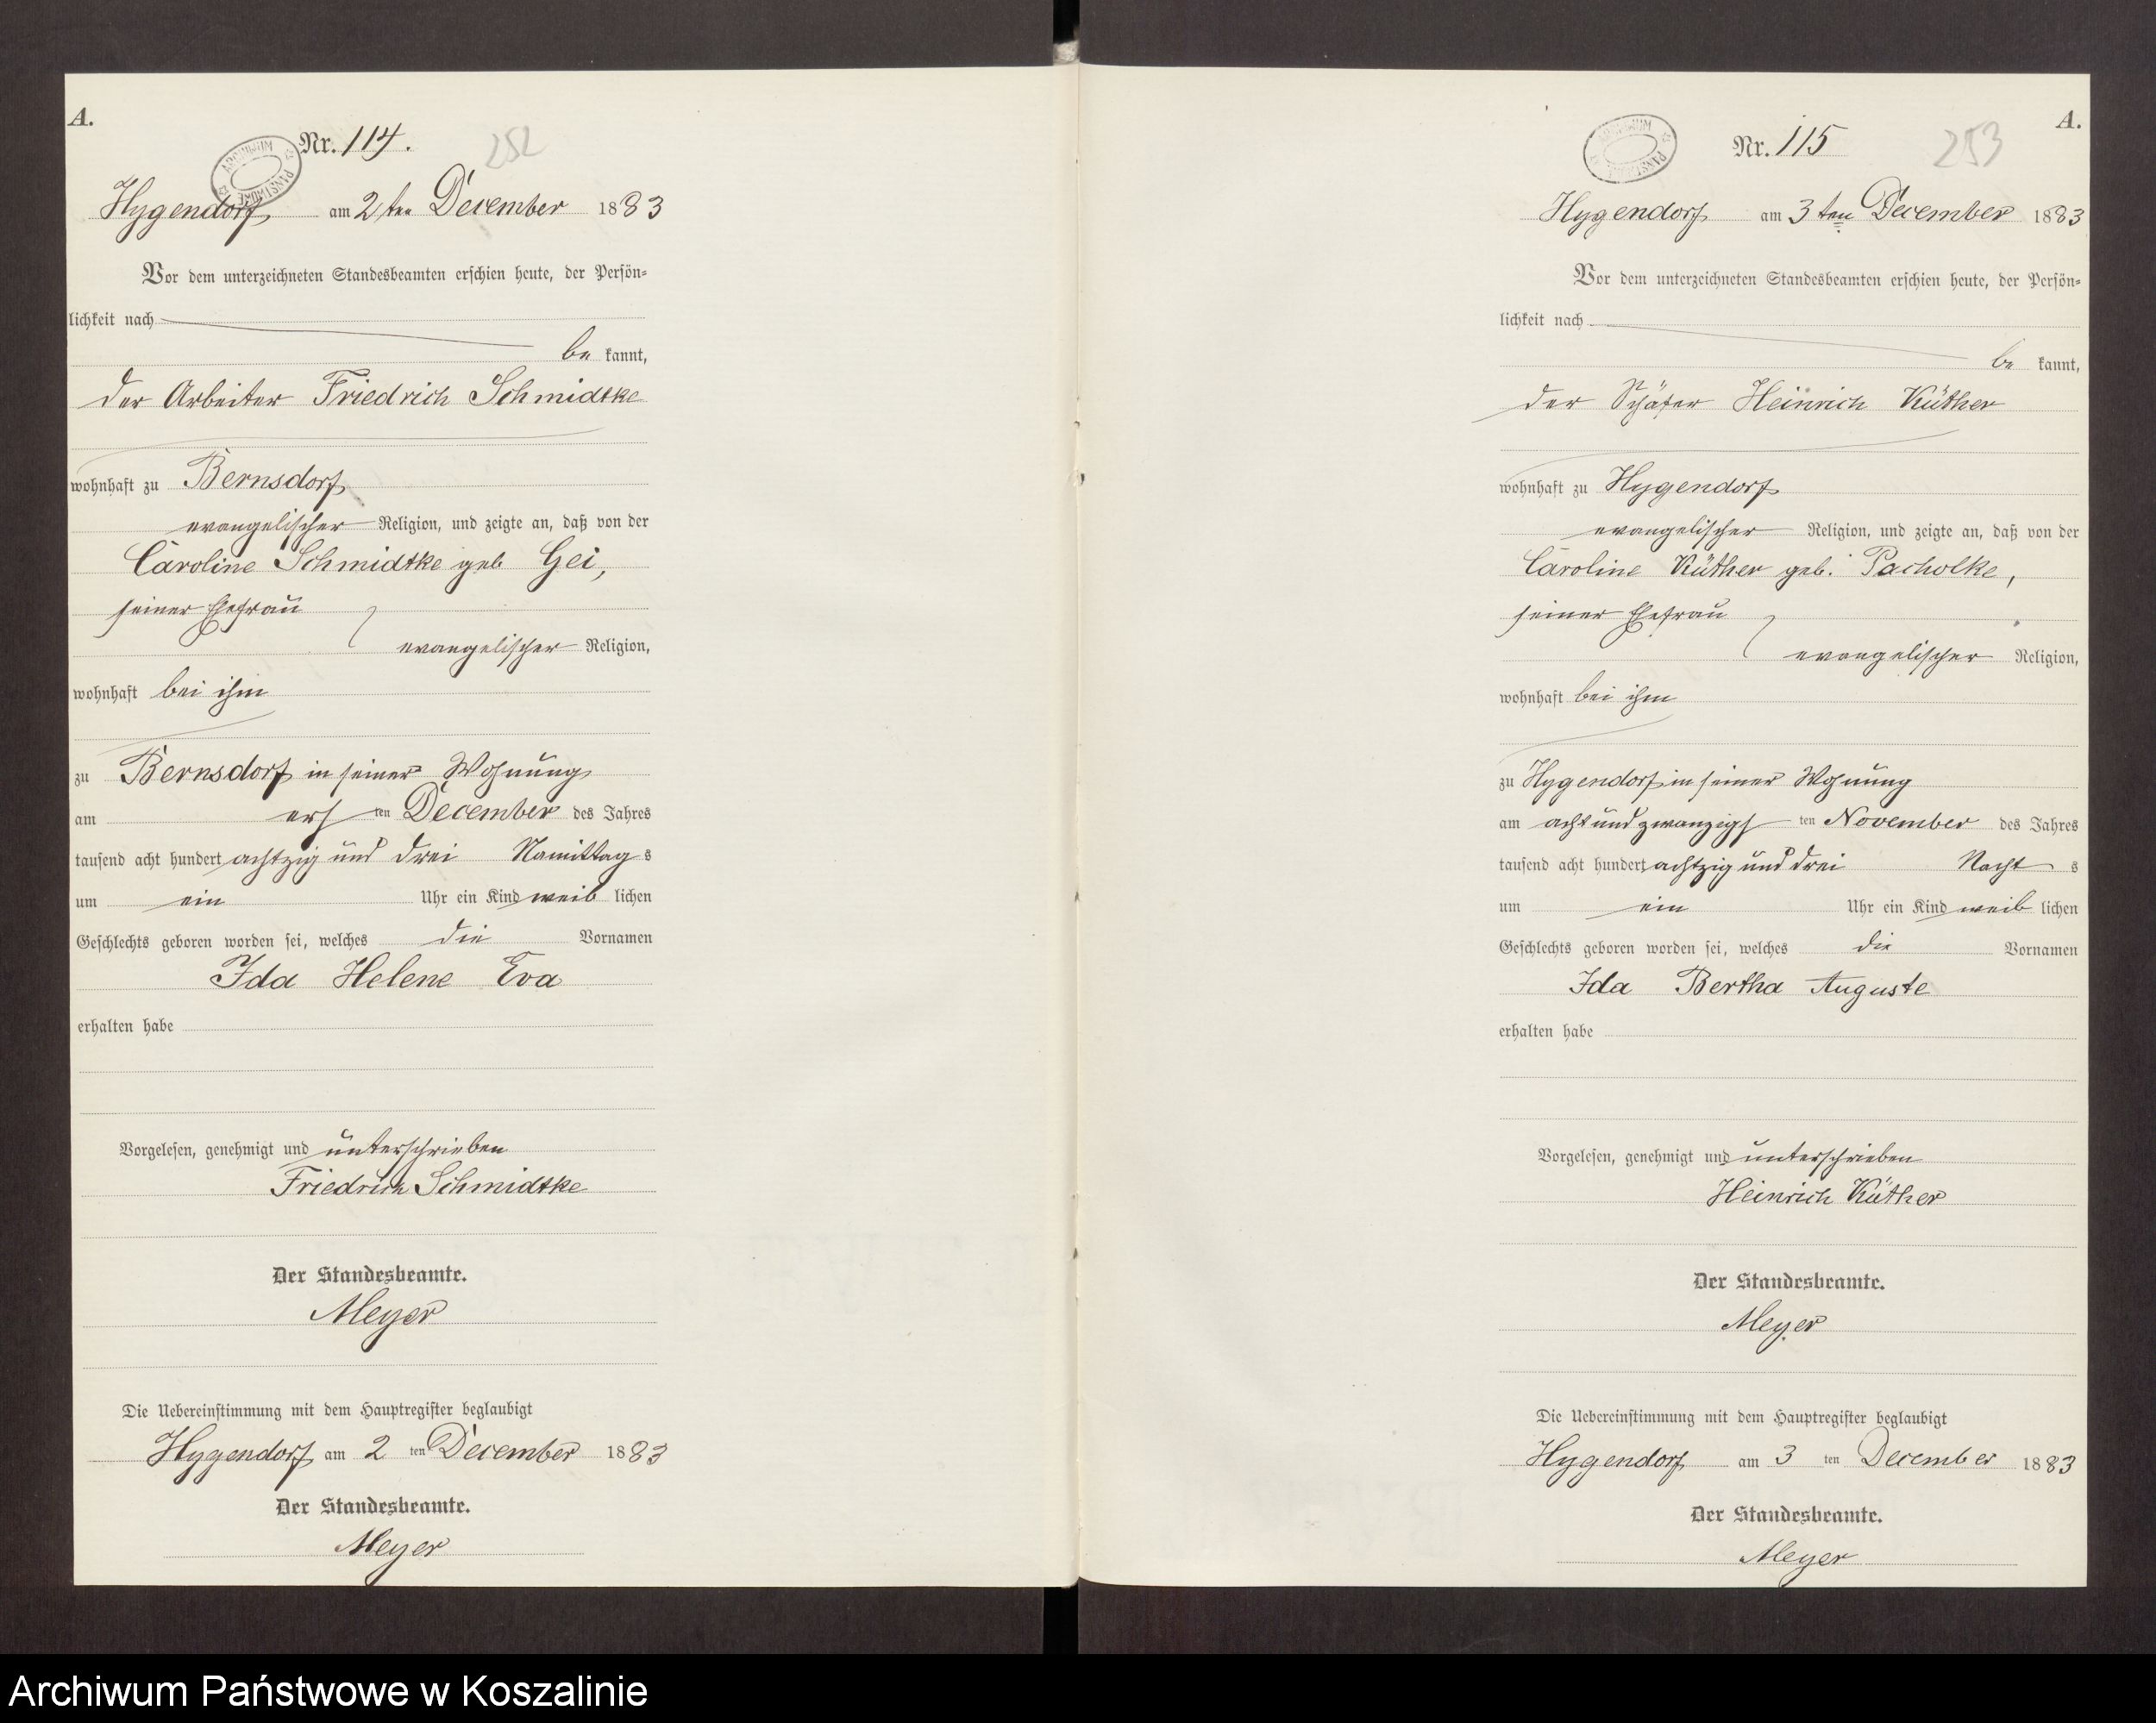 A.
Nr. 114.
252
ARCHIWUM PAŃSTWOWE
Hygendorf, am 2ten December 1883
Vor dem unterzeichneten Standesbeamten erschien heute, der Persön-
lichkeit nach
be kannt,
der Arbeiter Friedrich Schmidtke
wohnhaft zu Bernsdorf,
evangelischer Religion, und zeigte an, daß von der
Caroline Schmidtke geb Gei,
seiner Ehefrau
evangelischer Religion,
wohnhaft bei ihm
zu Bernsdorf in seiner Wohnung
am erst ten December des Jahres
tausend acht hundert achtzig und drei Namittag s
um ein Uhr ein Kind weib lichen
Geschlechts geboren worden sei, welches die Vornamen
Ida Helene Eva
erhalten habe
Vorgelesen, genehmigt und unterschrieben
Friedrich Schmidtke
Der Standesbeamte.
Meyer
Die Uebereinstimmung mit dem Hauptregister beglaubigt
Hygendorf am 2 ten December 1883
Der Standesbeamte.
Meyer
A.
Nr. 115
253
ARCHIWUM PAŃSTWOWE
Hygendorf am 3ten December 1883
Vor dem unterzeichneten Standesbeamten erschien heute, der Persön-
lichkeit nach
be kannt,
der Schäfer Heinrich Küther
wohnhaft zu Hygendorf
evangelischer Religion, und zeigte an, daß von der
Caroline Küther geb. Pacholke,
seiner Ehefrau
evangelischer Religion,
wohnhaft bei ihm
zu Hygendorf in seiner Wohnung
am acht und zwanzigs ten November des Jahres
tausend acht hundert achtzig und drei Nacht s
um ein Uhr ein Kind weib lichen
Geschlechts geboren worden sei, welches die Vornamen
Ida Bertha Auguste
erhalten habe
Vorgelesen, genehmigt und unterschrieben
Heinrich Küther
Der Standesbeamte.
Meyer
Die Uebereinstimmung mit dem Hauptregister beglaubigt
Hygendorf am 3 ten December 1883
Der Standesbeamte.
Meyer
Archiwum Państwowe w Koszalinie